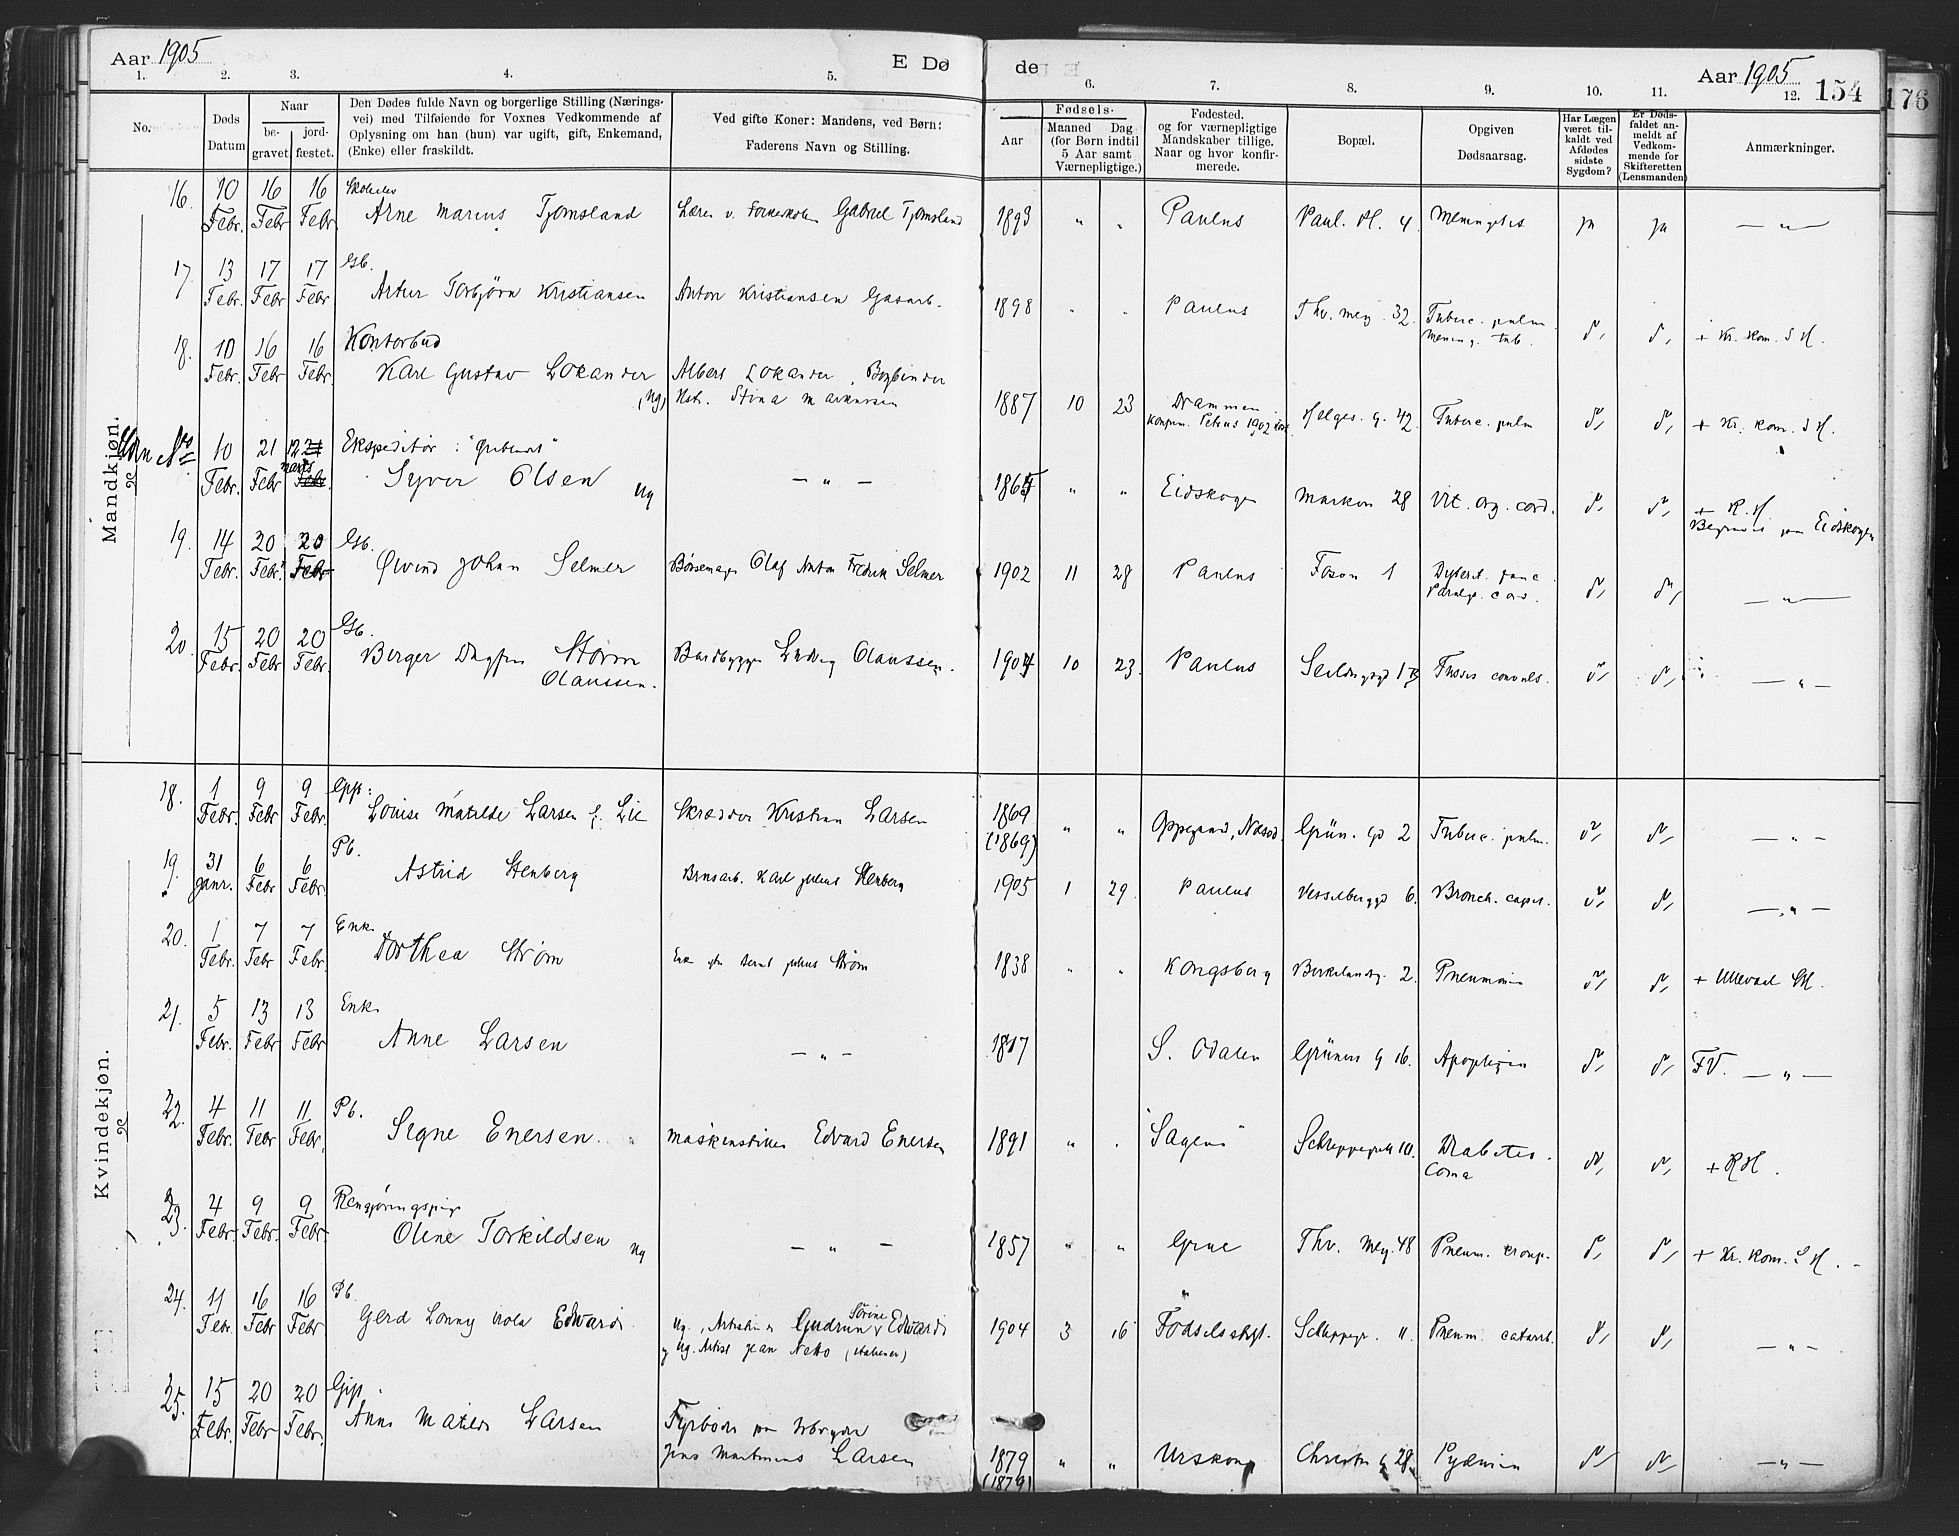 Aar 1905
E Døde
Aar 1905
154
176
1. 2. 3. 4. 5. 6. 7. 8. 9. 10. 11. 12.
No.
Døds Datum
Naar
be-gravet.
jord-fæstet.
Den Dødes fulde Navn og borgerlige Stilling (Nærings-
vei) med Tilføiende for Voxnes Vedkommende af
Oplysning om han (hun) var ugift, gift, Enkemand,
(Enke) eller fraskildt.
Ved gifte Koner: Mandens, ved Børn:
Faderens Navn og Stilling.
Fødsels-
Aar
Maaned Dag
(for Børn indtil
5 Aar samt
Værnepligtige.)
Fødested.
og for værnepligtige
Mandskaber tillige.
Naar og hvor konfir-
merede.
Bopæl.
Opgiven
Dødsaarsag.
Har Lægen
været til-
kaldt ved
Afdødes
sidste
Sygdom?
Er Døds-
faldet an-
meldt af
Vedkom-
mende for
Skifteretten
(Lensmanden)
Anmærkninger.
Mandkjøn.
16. 10 Febr. 16 Febr 16 Febr. Arne Marius Tjomsland Gabriel Tjomsland 1893 " " Paulus Paul. Pl. 4 Meningitis ja ja — " —
17. 13 Febr. 17 Febr 17 Febr Gb.
Artur Torbjørn Kristiansen Anton Kristiansen Gasarb. 1898 " " Paulus Thv. Mey. 32. Tuberc. pulm.
Mening. tub. + Kr. Kom. S H.
18. 10 Febr. 16 Febr 16 Febr. Kontorbud
Karl Gustav Lokander (ug) Albert Lokander, Bogbinder
Stina 1887 10 23 Drammen
Konfirm. Petrus 1902 Helges. g. 42 Tuberc. pulm + Kr. Kom. S H.
Uden No 10 Febr. 21 Febr 12 Marts Ekspeditør
Syver Olsen ug — " — " " Eidskogen Markvn 28 Vit. org. cord. + R. H
Begravet paa Eidskogen
19. 14 Febr. 20 Febr. 20 Febr Gb.
Øivind Johan Selmer Olaf Anton Fredrik Selmer 1902 11 28 Paulus 1 — " —
20. 15 Febr. 20 Febr 20 Febr. Gb.
Berger Dagfin Storm
Olaussen. Ludvig Olaussen. 1904 10 23. Paulus Tussis convuls. — " —
Kvindekjøn.
18. 1 Febr. 9 Febr 9 Febr.
Louise Matilde Larsen f. Lie Skrædder Kristian Larsen 1869
(1869) " " Oppegaard, Næsod. Grün. gd 2 Tuberc. pulm. — " —
19. 31 Janr. 6 Febr 6 Febr. Pb.
Astrid Stenberg Karl Julius Stenberg 1905 1 29. Paulus Vesselbergd 6. Bronch. capil. — " —
20. 1 Febr. 7 Febr 7 Febr. Enke
Dorthea Strøm Enke efter Bernt Julius Strøm 1838 " " Kongsberg Birkelundg. 2. Pneumoni + Ullevaal SH.
21. 5 Febr. 13 Febr 13 Febr Enke
Anne Larsen — " — 1817 S. Odalen Grüners g 16. Apoplexia FV. — " —
22. 4 Febr. 11 Febr 11 Febr. Pb.
Signe Enersen. Edvard Enersen 1891 " " "Sagene" Schleppegrels 10. Diabetes.
Coma + RH.
23. 4 Febr. 9 Febr. 9 Febr. Rengjøringspige
Oline Torkildsen ug — " — 1857 " " Grue Thv. Mey. 48 Pneum. croup. + Kr. Kom. S H.
24. 11 Febr. 16 Febr 16 Febr. Pb.
Gerd Lonny Edwards Ug. Artistinde Gudrun Sørine Edwards
og Ug. Artist Jean Netto (italiener) 1904 3 16 Fødselsstift. Schleppegr. 11. Pneum. catarrh. — " —
25. 15 Febr. 20 Febr 20 Febr.
Anna Matilde Larsen Fyrbøder
Jens Martinius Larsen 1879
(1879) " " Urskoug Christies g 28. Pydemia — " —